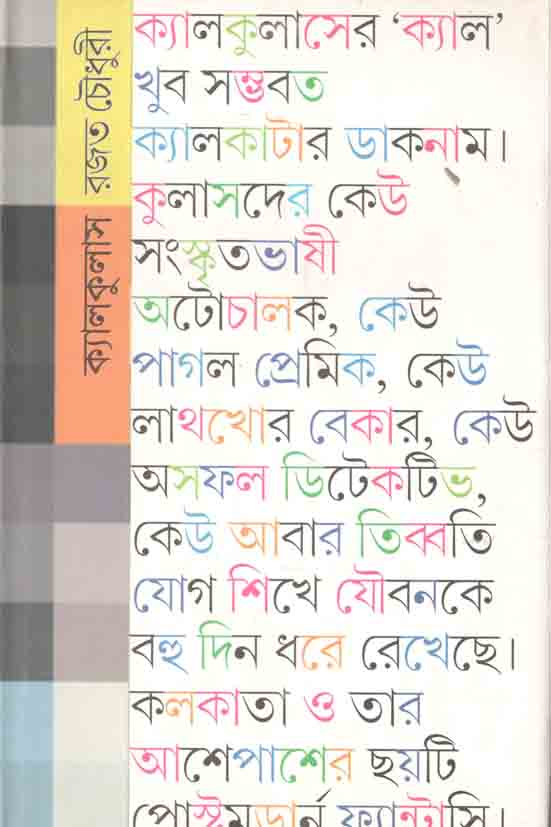 রজত চৌধুরী
ক্যালকুলাস
ক্যালকুলাসের ‘ক্যাল’
খুব সম্ভবত
ক্যালকাটার ডাকনাম।
কুলাসদের কেউ
সংস্কৃতভাষী
অটোচালক, কেউ
পাগল প্রেমিক, কেউ
লাথখোর বেকার, কেউ
অসফল ডিটেকটিভ,
কেউ আবার তিব্বতি
যোগ শিখে যৌবনকে
বহু দিন ধরে রেখেছে।
কলকাতা ও তার
আশেপাশের ছয়টি
পোস্টমডার্ন ফ্যান্টাসি।